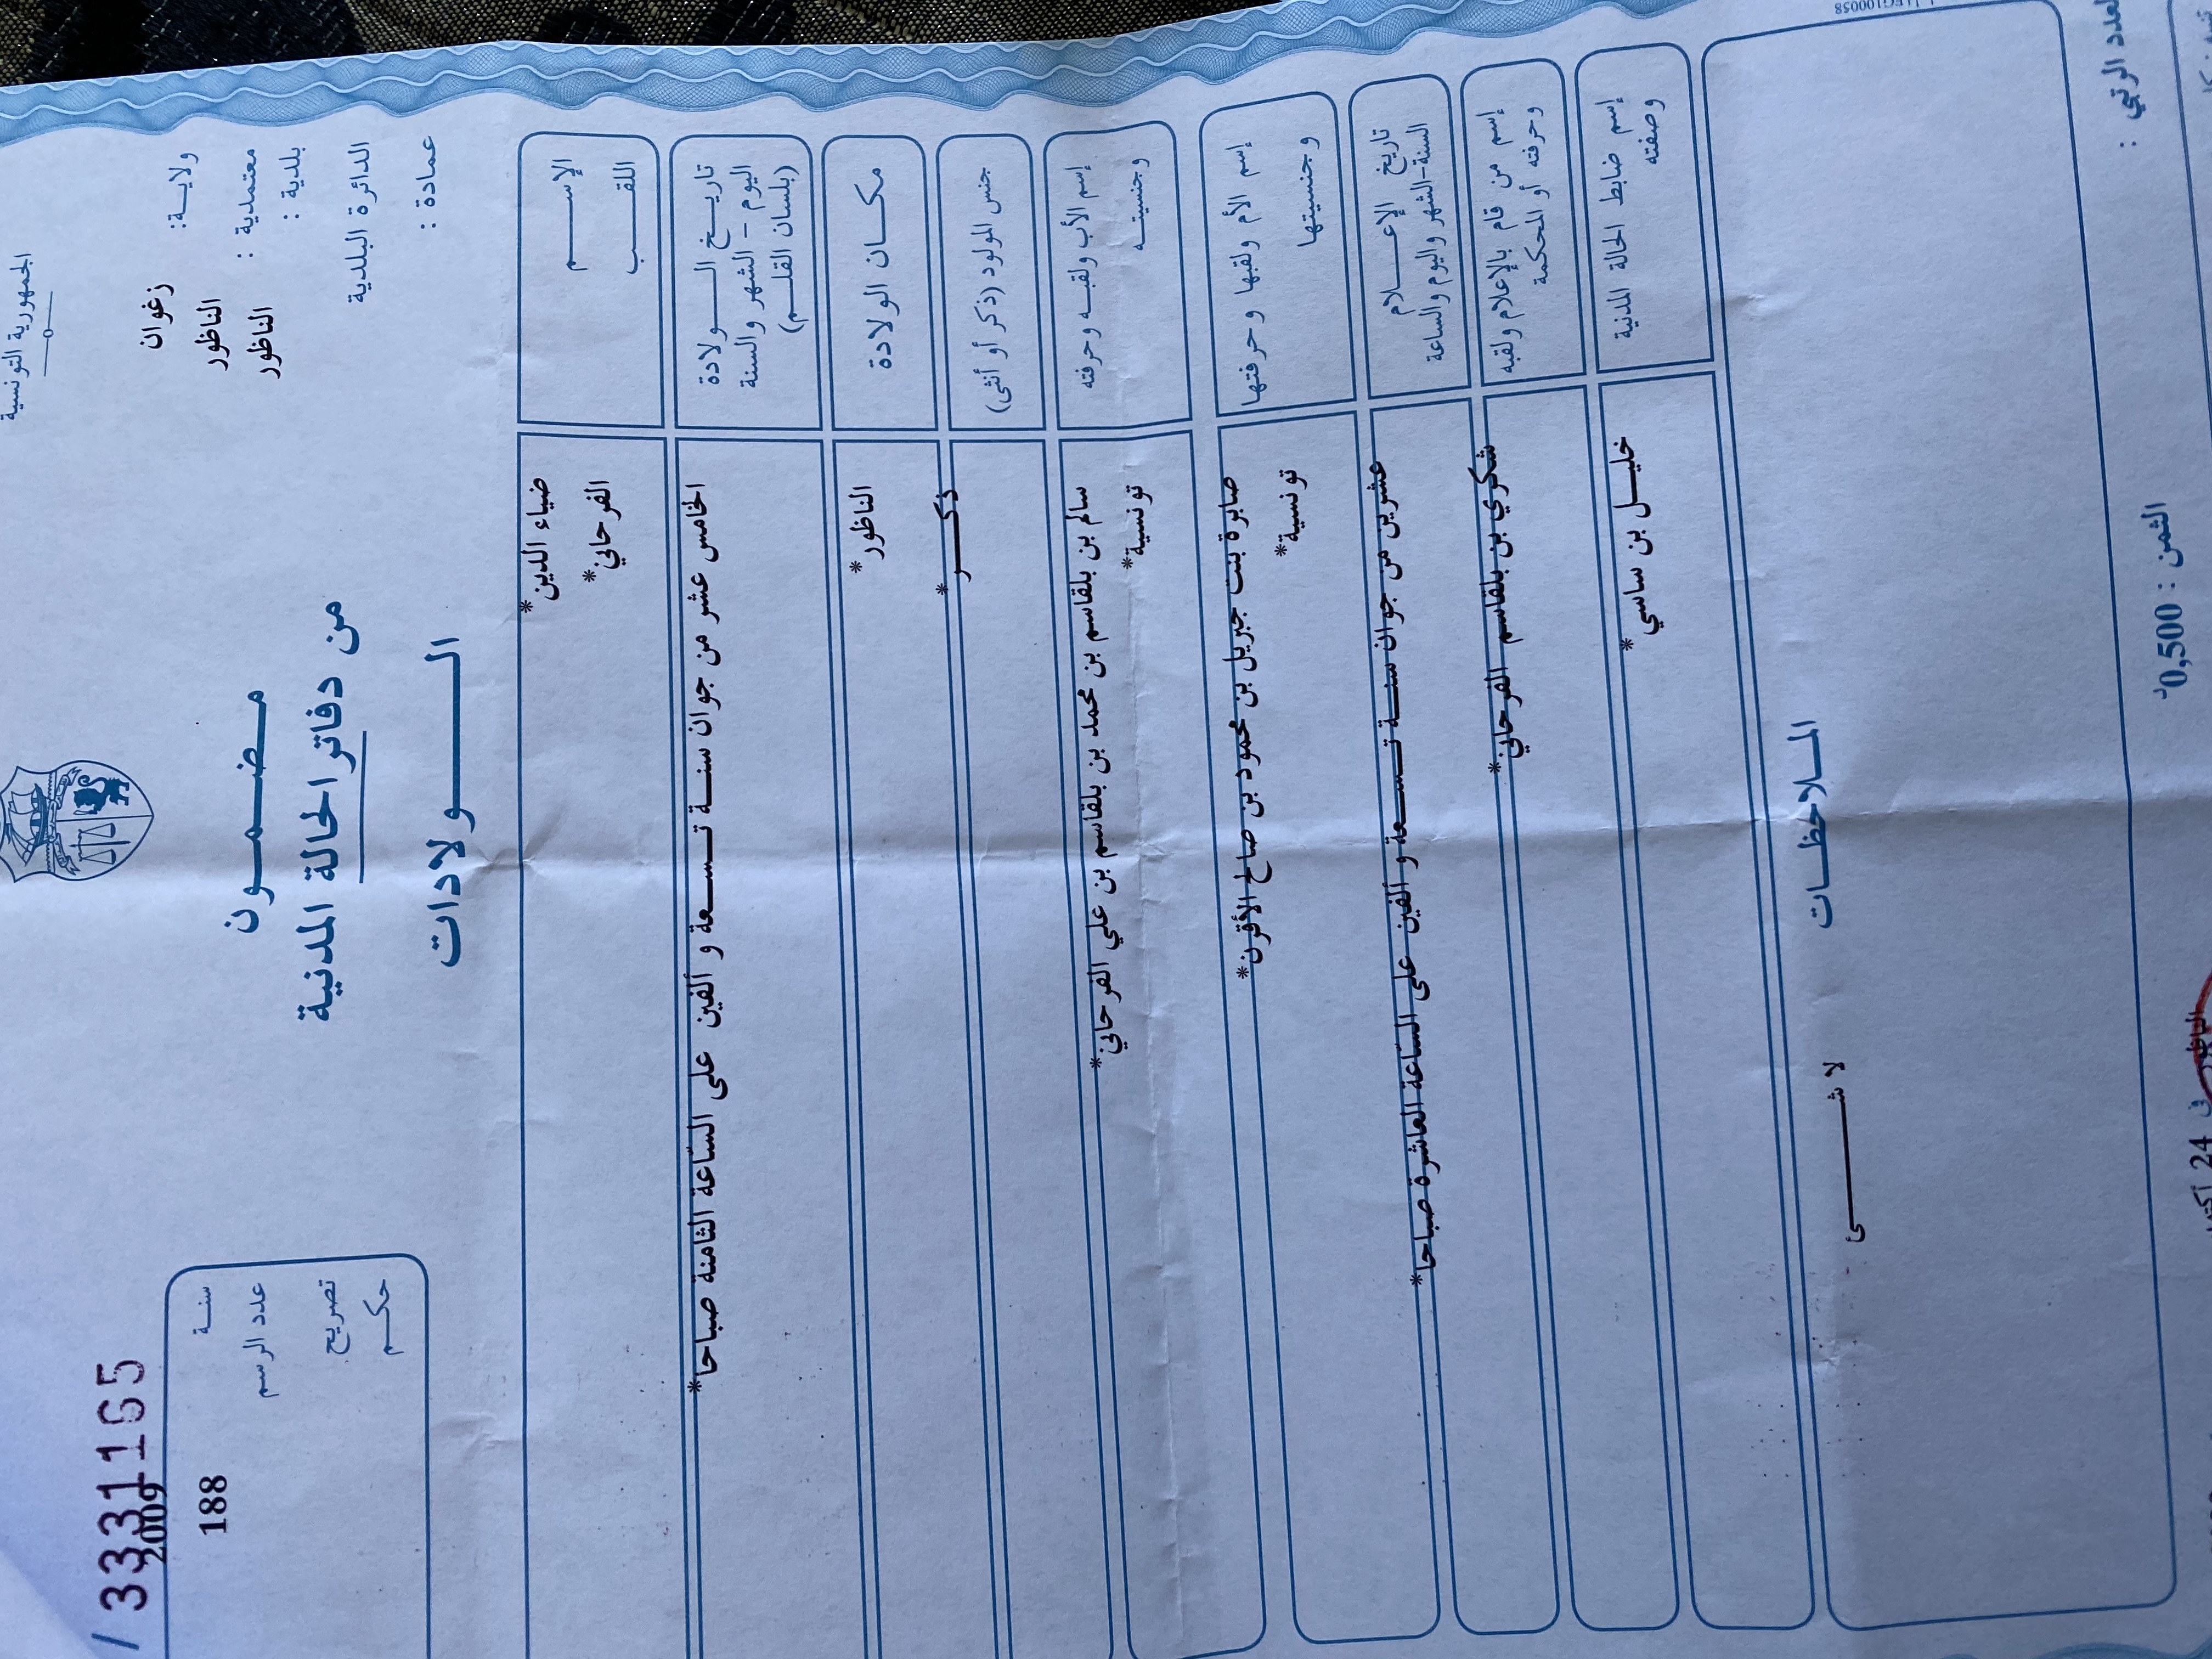 الجمهورية التونسية
ولايـــة: زغوان
معتمدية : الناظور
بلدية : الناظور
الدائرة البلدية
عمادة :
مـــضـــمــــون
من دفاتر الحالة المدنية
الـــــــولادات
/ 3331165
سنــة 2009
عدد الرسم 188
تصريح
حكــم
الإســــم ضياء الدين*
اللقــــب الفرحاني*
تاريـــخ الـــــولادة
اليوم – الشهر والسنة
(بلسان القلــم)
الخامس عشر من جوان سنـــة تـســـعة و ألفين على السّاعة الثامنة صباحا*
مكـــان الولادة الناظور*
جنس المولود (ذكر أو أنثى) ذكـــر*
إسم الأب ولقبـــه وحرفته سالم بن بلقاسم بن محمد بن بلقاسم بن علي الفرحاني*
وجنسيتـــه تونسية*
إسم الأم ولقبها وحرفتها صابرة بنت جبريل بن محمود بن صالح الأقرن*
وجنسيتها تونسية*
تاريخ الإعــــلام
السنة-الشهر واليوم والساعة
عشرين من جوان سنـــة تـســـعة و ألفين على السّاعة العاشرة صباحا*
إسم من قام بالإعلام ولقبه
وحرفته أو المحكمة
شكري بن بلقاسم الفرحاني*
إسم ضابط الحالة المدنية
وصفته
خليـــل بن ساسي*
المـــلاحظـــات
لا شـــــــئ
العدد الرقي :
الثمن : 0,500د
الناظور في 24